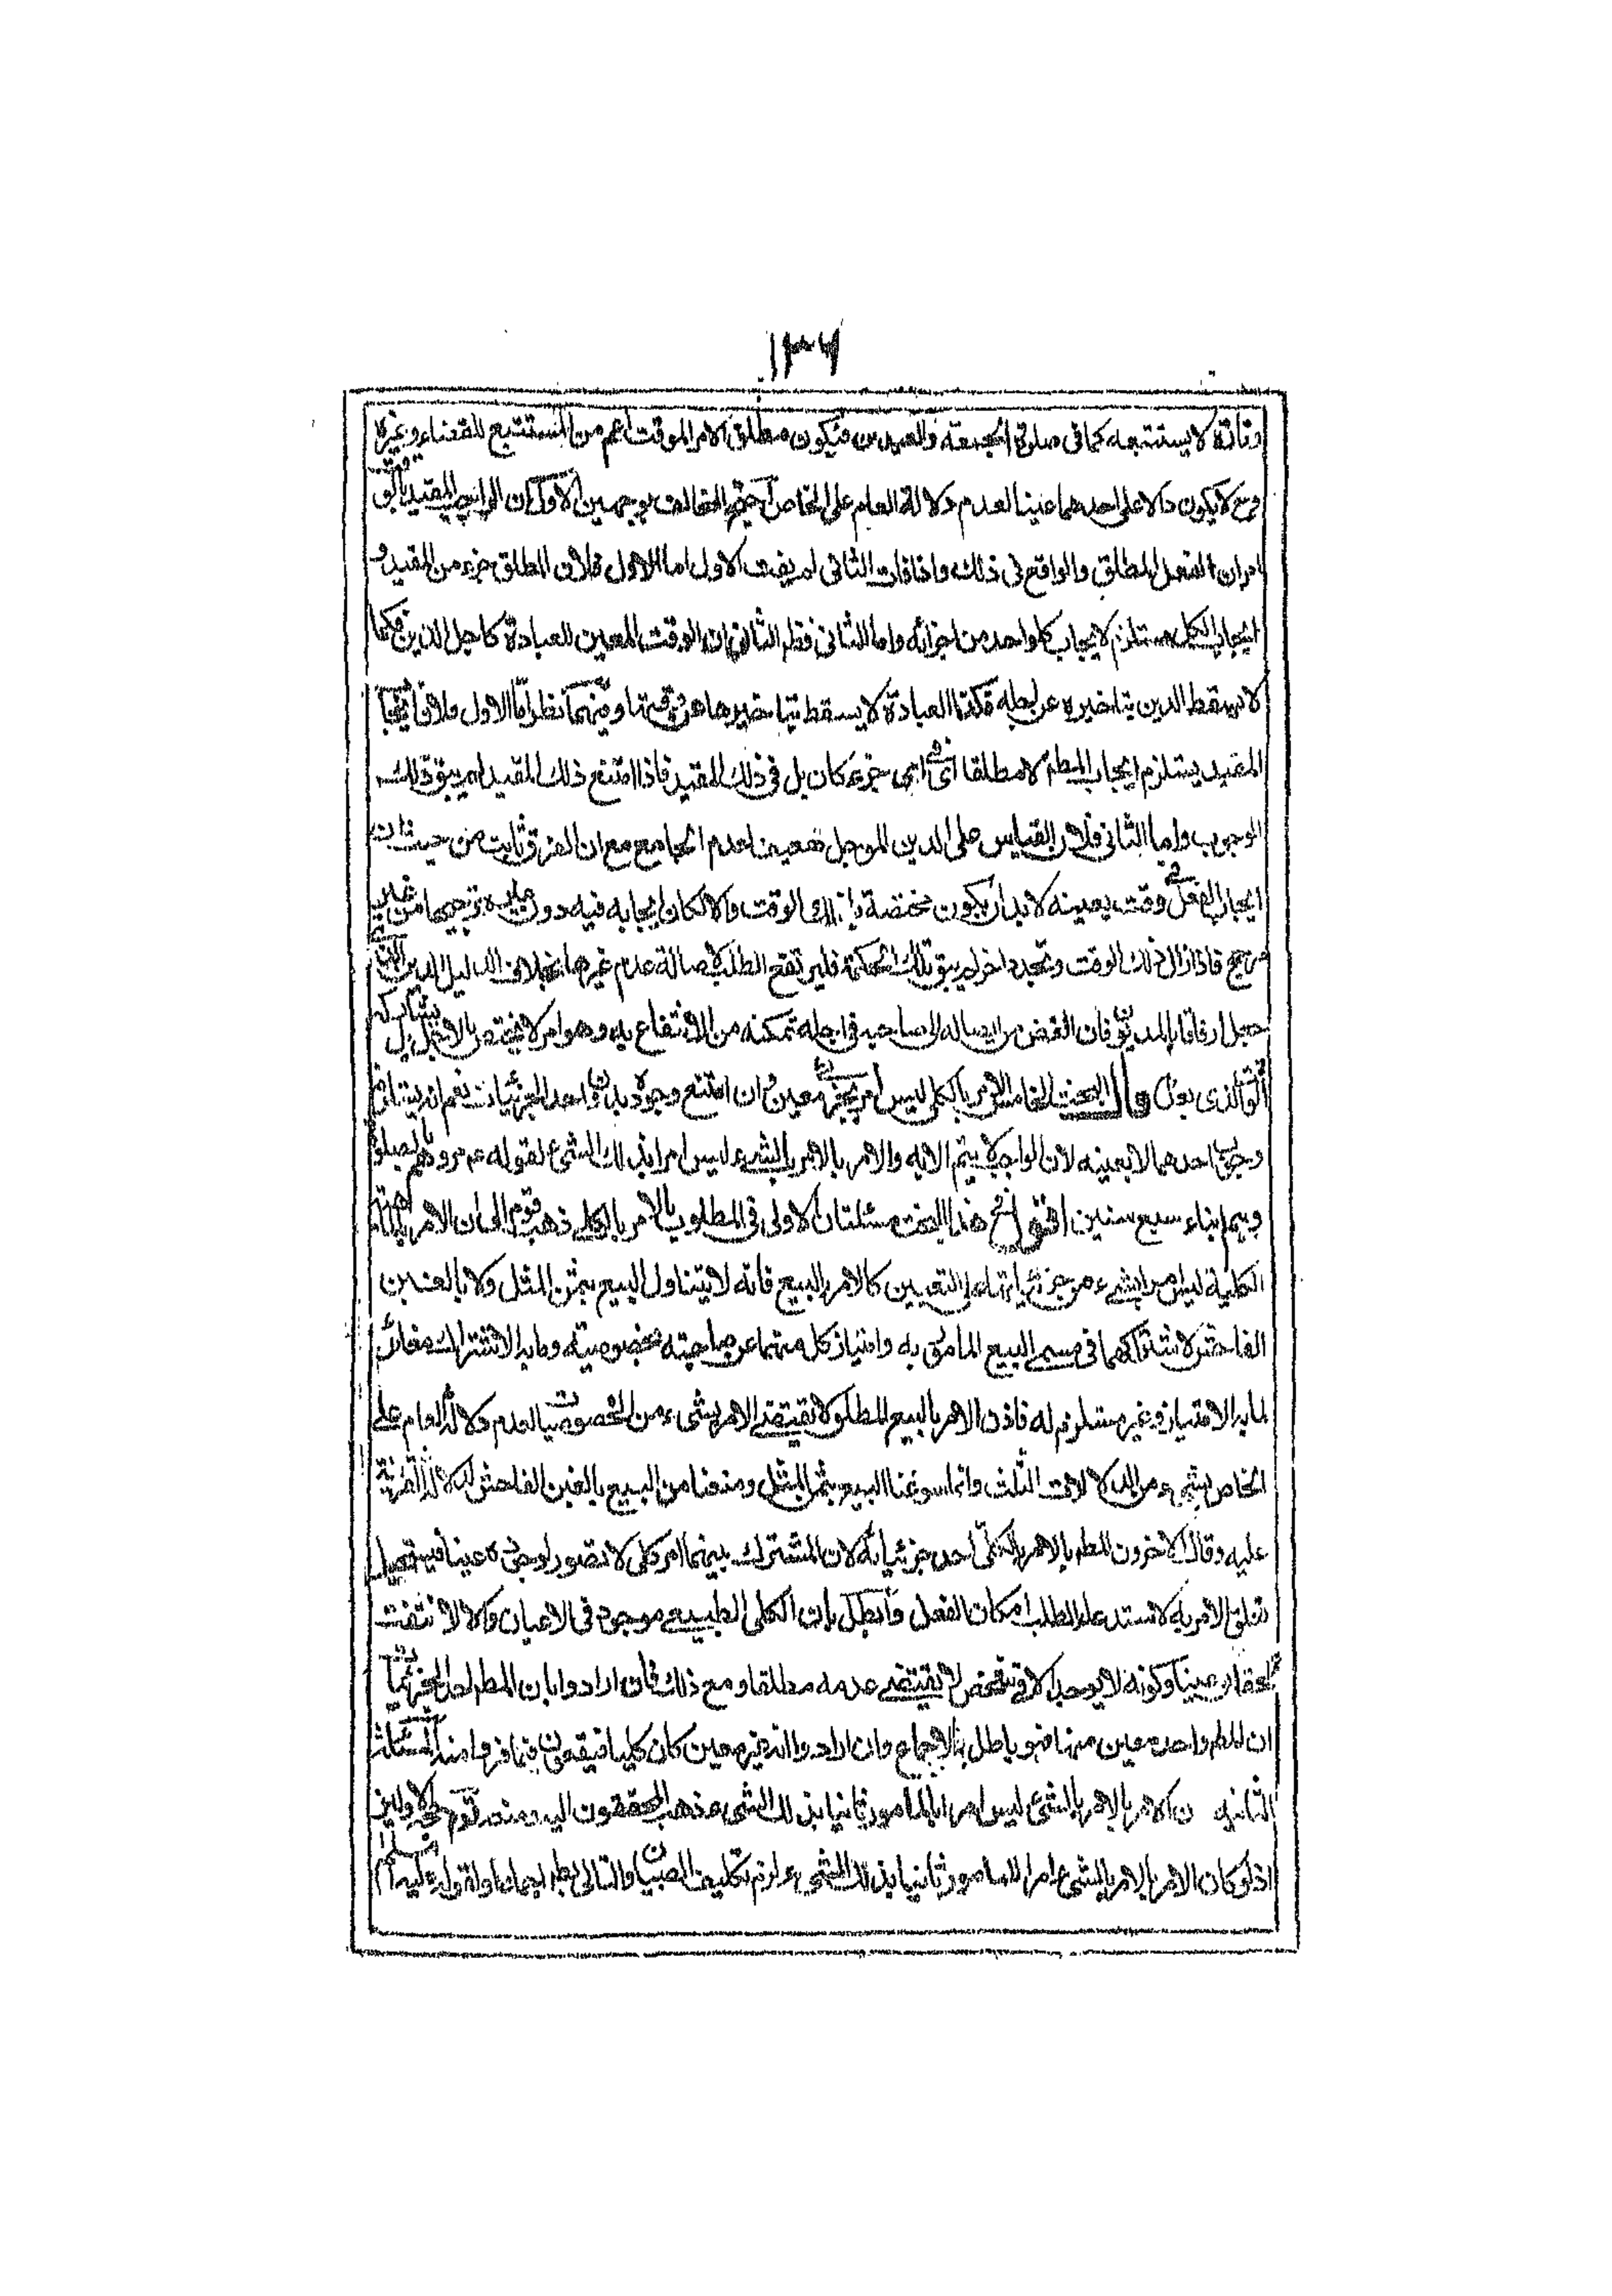 ١٣٦
وتارة لا يستتبعه كما في صلوة الجمعة والعيدين فيكون مطلق الامر الموقت اعم من المستتبع للقضاء وغيره
وح لا يكون دالا على احدهما عينا لعدم دلالة العام على الخاص احتج المخالف بوجهين الاول ان المقيد
امران الفعل المطلق والواقع في ذلك واذا فات الثاني لم يفت الاول اما الاول فلان المطلق جزء من المقيد و
ايجاب الكل مستلزم لايجاب كلواحد من اجزائه واما الثاني فظ الثاني ان الوقت المعين للعبادة كاجل الدين فكما
لا يسقط الدين بتاخيره عن اجله فكذا العبادة لا يسقط بتاخيرها عن وقتها وفيهما نظر اما الاول فلان ايجاب
المقيد يستلزم ايجاب المط لا مطلقا اى في اى جزء كان بل في ذلك المقيد فاذا امتنع ذلك المقيد لم يبق ذلك
الوجوب واما الثاني فلان القياس على الدين الموجل ضعيف لعدم الجامع مع ان الفرق ثابت من حيث ان
ايجاب الفعل في وقت بعينه لا بد ان يكون مختصة بذلك الوقت والا لكان ايجابه فيه دون غيره ترجيحا من غير
مرجح فاذا زال ذلك الوقت وتجدد اخر لم يبق تلك الحكمة فلم تقع الطلب لاصالة عدم غيرها بخلاف الدين
جعل ارفاقا بالمديون فان الغرض من ايصاله الى صاحبه في اجله تمكنه من الانتفاع به وهو امر لا يختص بالاجل بل يشاركه
الوقت الذى بعده قال البحث الخامس الامر بالكلي ليس امرا بجزئي معين وان امتنع وجوده بدون احد الجزئيات نعم انه يستلزم
وجوب احدهما لا بعينه لان الواجب لا يتم الا به والامر بالامر بالشيء ليس امرا بذلك الشيء لقوله عم مروهم بالصلوة
وهم ابناء سبع سنين اقول في هذا البحث مسئلتان الاولى في المطلوب بالامر بالكلي ذهب قوم الى ان الامر بالماهية
الكلية ليس امرا بشيء من جزئياتها على التعيين كالامر بالبيع فانه لا يتناول البيع بثمن المثل ولا بالغبن
الفاحش لاشتراكهما في مسمى البيع المامور به وامتياز كل منهما عن صاحبه بخصوصيته وما به الاشتراك مغاير
لما به الامتياز وغير مستلزم له فاذن الامر بالبيع المطلق لا يقتضي الامر بشيء من الخصوصيات لعدم دلالة العام على
الخاص بشيء من الدلالات الثلث وانما سوغنا البيع بثمن المثل ومنعنا من البيع بالغبن الفاحش لدلالة القرينة
عليه وقال الاخرون المط بالامر بالكلي احد جزئياته لان المشترك بينهما امر كلي لا تصور لوجوده عينا فيستحيل
تعلق الامر به لاستدعاء الطلب امكان الفعل وابطل بان الكلي الطبيعي موجود في الاعيان والا لانتفت
الحقايق عينا وكونه لا يوجد الا في شخص لا يقتضي عدمه مطلقا ومع ذلك فان ارادوا بان المط احد الجزئيات
ان المط واحد معين منها فهو باطل بالاجماع وان ارادوا انه غير معين كان كليا فيقعون فيما فروا منه المسئلة
الثانية ان الامر بالامر بالشيء ليس امرا بالمامور ثانيا بذلك الشيء ذهب المحققون اليه ومنعه قوم
اذ لو كان الامر بالامر بالشيء امرا للمامور ثانيا بذلك الشيء لزم تكليف الصبيان والتالى بط اجماعا